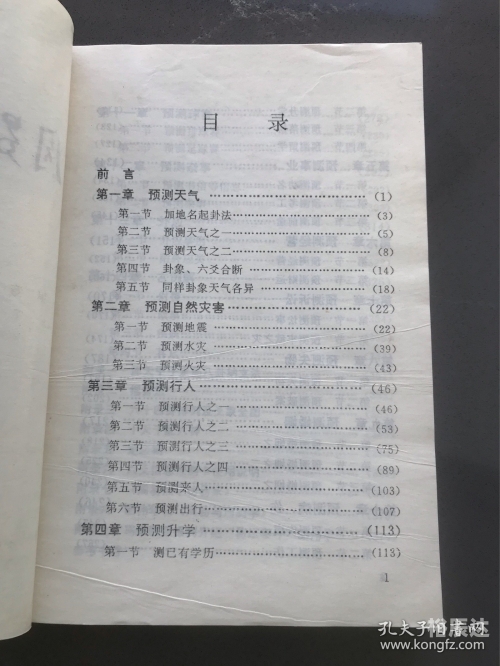 目 录
前 言
第一章 预测天气 ……………………………… (1)
第一节 加地名起卦法 ……………………… (3)
第二节 预测天气之一 ……………………… (5)
第三节 预测天气之二 ……………………… (8)
第四节 卦象、六爻合断 …………………… (14)
第五节 同样卦象天气各异 ………………… (18)
第二章 预测自然灾害 ………………………… (22)
第一节 预测地震 …………………………… (22)
第二节 预测水灾 …………………………… (39)
第三节 预测火灾 …………………………… (43)
第三章 预测行人 ……………………………… (46)
第一节 预测行人之一 ……………………… (46)
第二节 预测行人之二 ……………………… (53)
第三节 预测行人之三 ……………………… (75)
第四节 预测行人之四 ……………………… (89)
第五节 预测来人 …………………………… (103)
第六节 预测出行 …………………………… (107)
第四章 预测升学 ……………………………… (113)
第一节 测已有学历 ………………………… (113)
1
孔夫子旧书网
www.kongfz.com